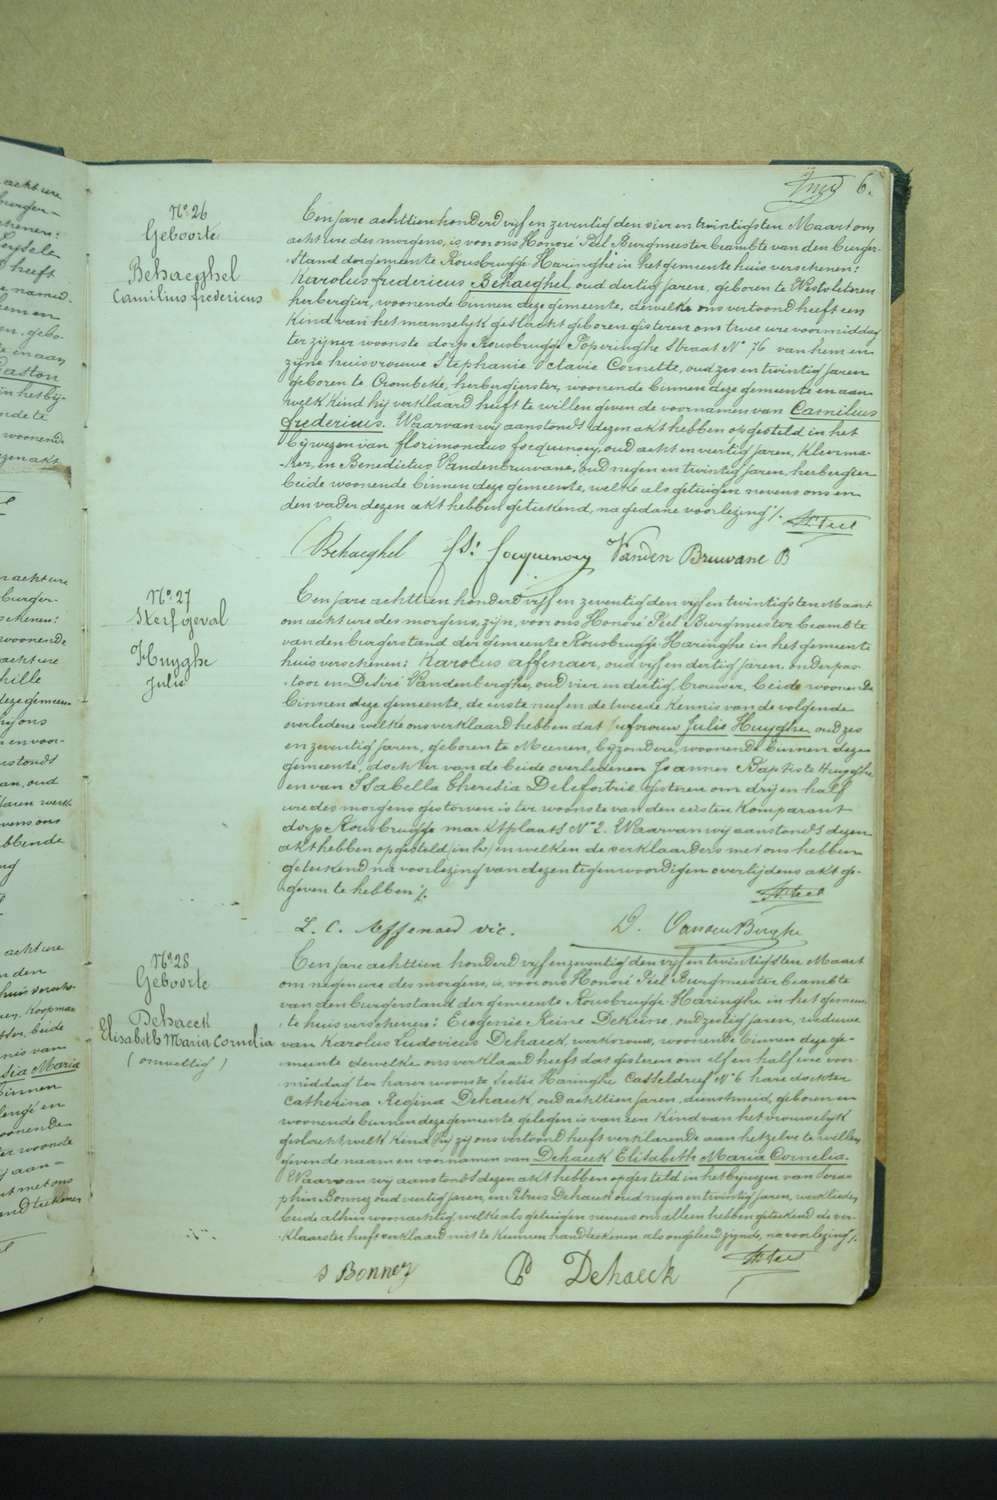 6.
N° 26
Geboorte
Behaeghel
Camilius fredericus
Ten jare achttien honderd vijf en zeventig den vier en twintigsten Maart om
acht ure des morgens, is voor ons Honoré Peel Burgmeester beambte van den burger-
-stand der gemeente Rousbrugge-Haringhe in het gemeente huis verschenen:
Karolus fredericus Behaeghel oud dertig jaren, geboren te Westvleteren
herbergier, woonende binnen deze gemeente, dewelke ons vertoond heeft een
kind van het mannelijk geslacht geboren gisteren om twee ure voormiddag
ter zijner woonste dorp Rousbrugge Poperinghe straat N° 76 van hem en
zijne huisvrouwe Stephanie Octavie Cornette, oud zes en twintig jaren
geboren te Crombeke, herbergierster, woonende binnen deze gemeente en aan
welk kind hij verklaard heeft te willen geven de voornamen van Camilius
fredericus. Waarvan wij aanstonds dezen akt hebben opgesteld in het
bijwezen van florimondus focquenoey, oud acht en veertig jaren, kleerma-
-ker, en Benedictus Vandenbruwane, oud negen en twintig jaren, herbergier
beide woonende binnen deze gemeente, welke als getuigen nevens ons en
den vader dezen akt hebben geteekend, na gedane voorlezing ./.
H. Peel
Behaeghel fs: focquenoey Vanden Bruwane B
N° 27
Sterfgeval
Huyghe
Julie
Ten jare achttien honderd vijf en zeventig den vijf en twintigsten Maart
om acht ure des morgens, zijn, voor ons Honoré Peel Burgmeester beambte
van den burgerstand der gemeente Rousbrugge Haringhe in het gemeente
huis verschenen: Karolus affenaer, oud vijf en dertig jaren, onderpas-
-toor en Desiré Vandenberghe, oud vier en dertig brouwer, beide woonende
binnen deze gemeente, de eerste neef en de tweede kennis van de volgende
overledene welke ons verklaard hebben dat jufvrouw Julie Huyghe oud zes
en zeventig jaren, geboren te Meenen, bijzondere, woonende binnen deze
gemeente, dochter van de beide overledenen Joannes Baptiste Huyghe
en van Isabella Theresia Delefortrie gisteren om drij en half
ure des morgens gestorven is ter woonste van den eersten komparant
dorp Rousbrugge marktplaats N° 2. Waarvan wij aanstonds dezen
akt hebben opgesteld in het en welken de verklaarders met ons hebben
geteekend na voorlezing van dezen tegenwoordigen overlijdens akt ge-
-geven te hebben ./.
H. Peel
L. C. Affenaer vic. D. VandenBerghe
N° 28
Geboorte
Dehaeck
Elisabeth Maria Cornelia
( onwettig )
Ten jare achttien honderd vijf en zeventig den vijf en twintigsten Maart
om negen ure des morgens, is, voor ons Honoré Peel Burgmeester beambte
van den burgerstand der gemeente Rousbrugge-Haringhe in het gemeen-
-te huis verschenen: Eugenie Reine Dekeine, oud zestig jaren, weduwe
van Karolus Ludovicus Dehaeck, werkvrouw, woonende binnen deze ge-
-meente dewelke ons verklaard heeft dat gisteren om elf en half ure voor-
-middag ter harer woonste sectie Haringhe Casseldreef N° 6 hare dochter
Catherina Regina Dehaeck, oud achttien jaren, dienstmeid, geboren en
woonende binnen deze gemeente gelegen is van een kind van het vrouwelijk
geslacht welk kind zij ons vertoond heeft verklarende aan hetzelve te willen
geven de naam en voornamen van Dehaeck Elisabeth Maria Cornelia.
Waarvan wij aanstonds dezen akt hebben opgesteld in het bijwezen van Sera-
-phin Bonnez oud veertig jaren, en Petrus Dehaeck oud negen en twintig jaren, werklieden,
beide alhier woonachtig welke als getuigen nevens ons alleen hebben geteekend de ver-
-klaarster heeft verklaard niet te kunnen handteekenen als ongeleerd zijnde, na voorlezing ./.
H. Peel
S Bonnez P Dehaeck